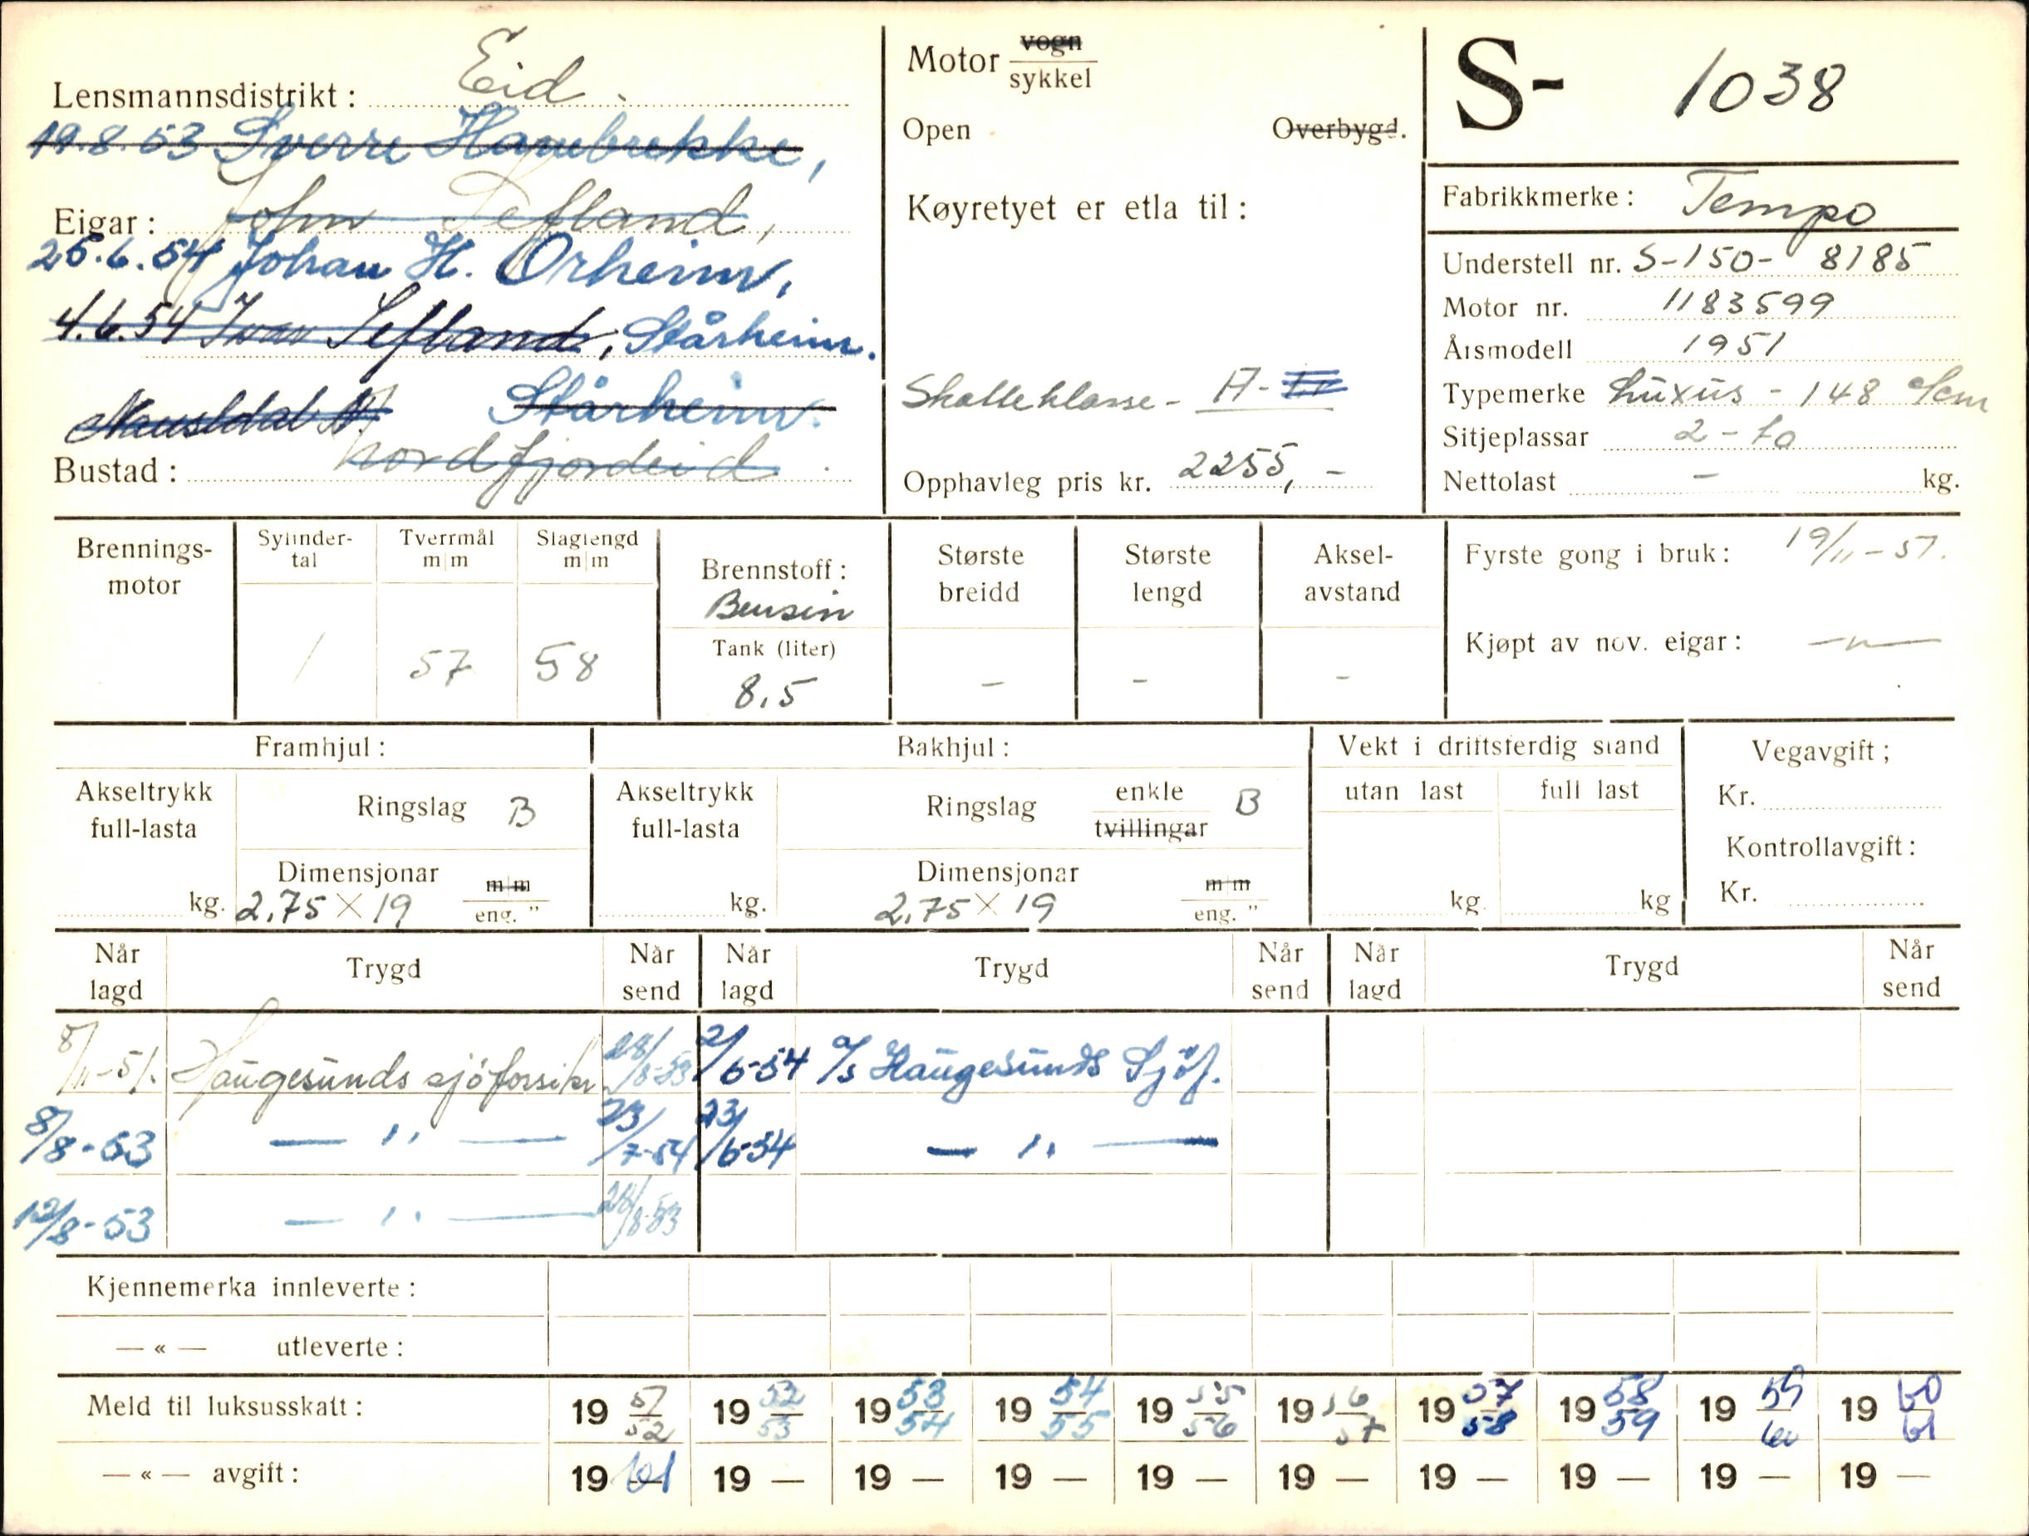 Lensmannsdistrikt: Eid.
19.8.53 Sverre Hamebrekke,
Eigar: John Sefland,
25.6.54 Johan H. Orheim,
4.6.54 Ivar Sefland, Stårheim.
Naustdal Stårheim.
Bustad: Nordfjordeid
Motor vogn / sykkel
Open Overbygd.
Køyretyet er etla til:
Skatteklasse - A-
Opphavleg pris kr. 2255,-
S- 1038
Fabrikkmerke: Tempo
Understell nr. S-150- 8185
Motor nr. 1183599
Årsmodell 1951
Typemerke Luxus - 148
Sitjeplassar 2 - to
Nettolast - kg.
Brennings-motor
Sylinder-tal 1
Tverrmål m|m 57
Slaglengd m|m 58
Brennstoff: Bensin
Tank (liter) 8,5
Største breidd -
Største lengd -
Aksel-avstand -
Fyrste gong i bruk: 19/11-51.
Kjøpt av nov. eigar: —"—
Framhjul: Bakhjul: Vekt i driftsferdig stand Vegavgift;
Akseltrykk full-lasta kg.
Ringslag B
Dimensjonar 2,75 × 19 m|m eng. "
Akseltrykk full-lasta kg.
Ringslag enkle tvillingar B
Dimensjonar 2,75 × 19 m|m eng. "
utan last kg.
full last kg
Kr.
Kontrollavgift:
Kr.
Når lagd Trygd Når send Når lagd Trygd Når send Når lagd Trygd Når send
8/11-51. Haugesunds sjöforsikr. 28/8-53 2/6-54 a/s Haugesunds Sjöf.
8/8-53 — " — 23/7-54 23/6-54 — " —
12/8-53 — " — 28/8-53
Kjennemerka innleverte:
— « — utleverte:
Meld til luksusskatt: 19 51/52 19 52/53 19 53/54 19 54/55 19 55/56 19 56/57 19 57/58 19 58/59 19 59/60 19 60/61
— « — avgift: 19 61 19 — 19 — 19 — 19 — 19 — 19 — 19 — 19 — 19 —